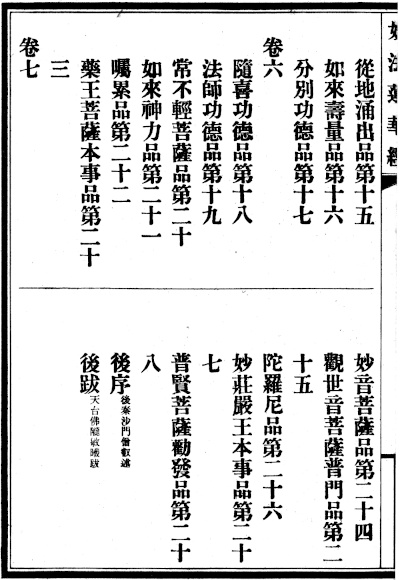 妙法蓮華經
從地涌出品第十五
如來壽量品第十六
分別功德品第十七
卷六
隨喜功德品第十八
法師功德品第十九
常不輕菩薩品第二十
如來神力品第二十一
囑累品第二十二
藥王菩薩本事品第二十
三
卷七
妙音菩薩品第二十四
觀世音菩薩普門品第二
十五
陀羅尼品第二十六
妙莊嚴王本事品第二十
七
普賢菩薩勸發品第二十
八
後序後秦沙門僧叡述
後跋天台佛隴敏曦跋